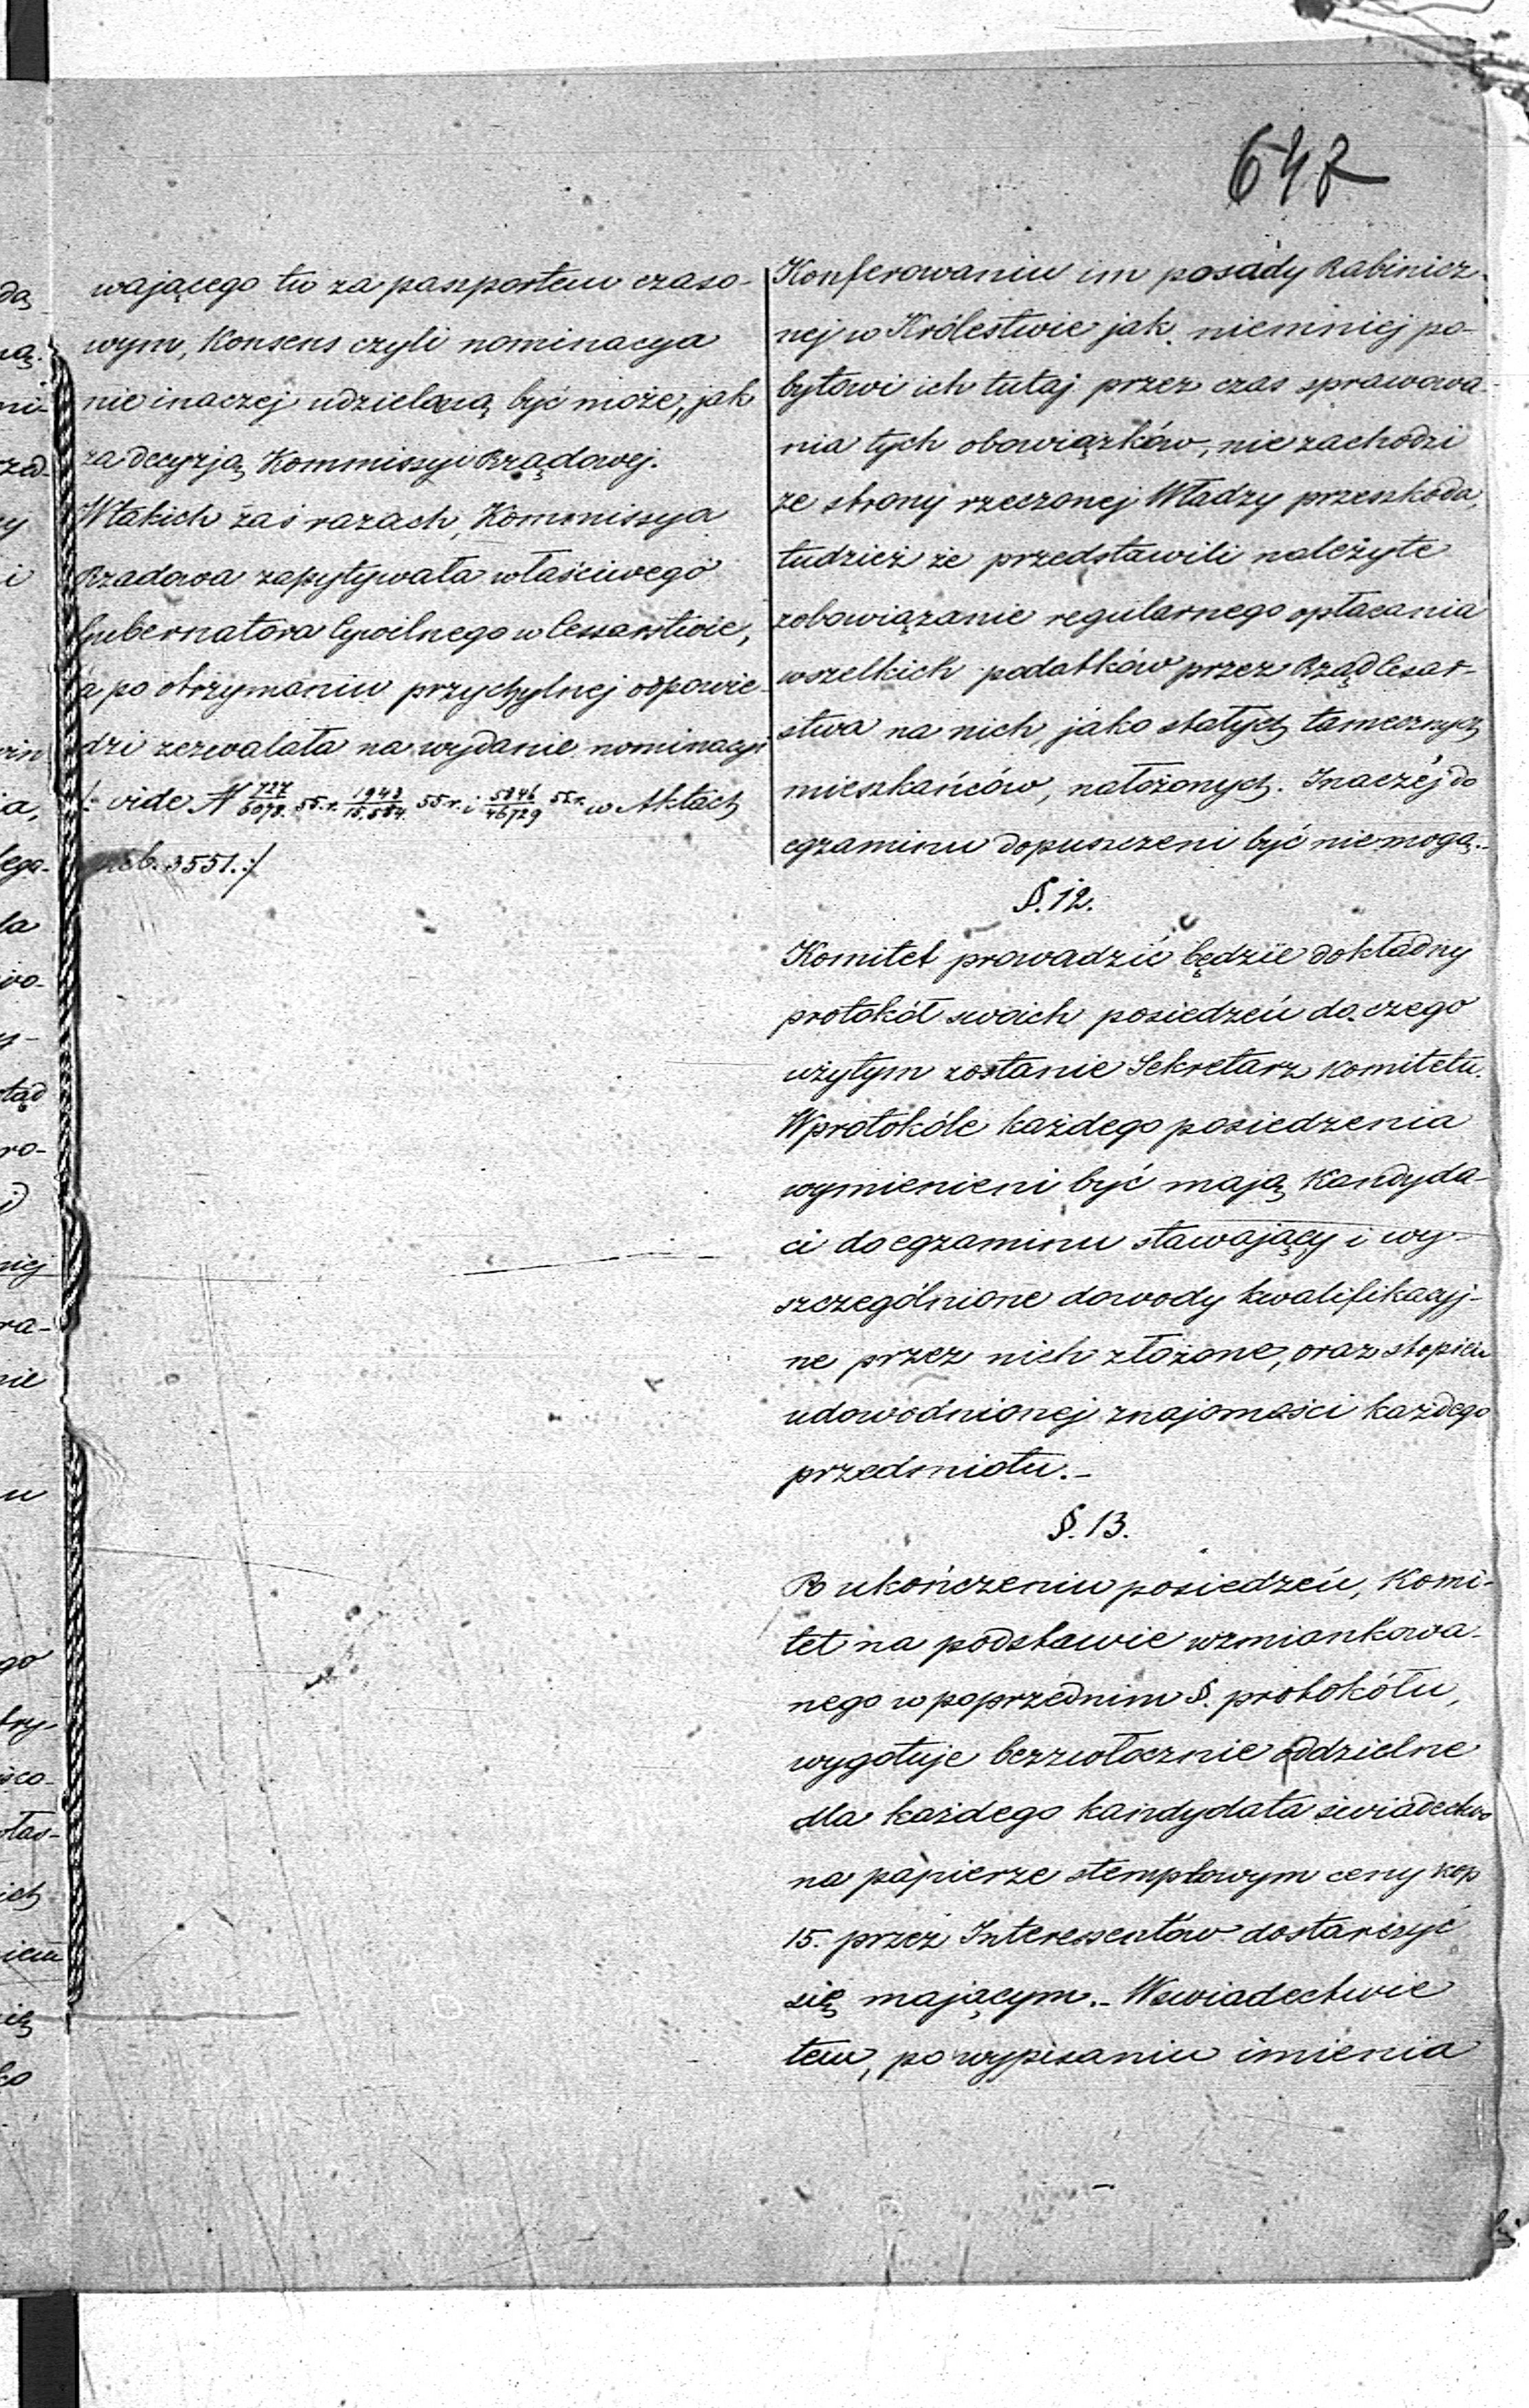 648
wającego tu za paszportem czaso-
wym, Konsens czyli nominacya
nie inaczej udzieloną być może, jak
za decyzją Kommissyi Rządowej.
W takich zaś razach, Kommissya
Rządowa zapytywała właściwego
Gubernatora Cywilnego w Cesarstwie,
a po otrzymaniu przychylnej odpowie-
dzi zezwalała na wydanie nominacyi
/: vide N 727/6078. 55.r. 1943/15,584. 55 r. i 5846/46729 55r. w Aktach
vol. 3551. :/
Konferowaniu im posady Rabinicz-
nej w Królestwie jak niemniej po-
bytowi ich tutaj przez czas sprawowa-
nia tych obowiązków, nie zachodzi
ze strony rzeczonej Władzy przeszkoda,
tudzież że przedstawili należyte
zobowiązanie regularnego opłacania
wszelkich podatków przez Rząd Cesar-
stwa na nich jako stałych tamecznych
mieszkańców, nałożonych. Inaczéj do
egzaminu dopuszczeni być niemogą.-
§. 12.
Komitet prowadzić będzie dokładny
protokół swoich posiedzeń do czego
użytym zostanie Sekretarz Komitetu.
W protokóle każdego posiedzenia
wymienieni być mają Kandyda-
ci do egzaminu stawający i wy-
szczególnione dowody kwalifikacyj-
ne przez nich złożone, oraz stopień
udowodnionej znajomości każdego
przedmiotu.-
§. 13.
Po ukończeniu posiedzeń, Komi-
tet na podstawie wzmiankowa-
nego w poprzednim §. protokółu,
wygotuje bezzwłocznie oddzielne
dla każdego kandydata świadectwo
na papierze stemplowym ceny kop
15. przez Interessentów dostarczyć
się mającym.- W świadectwie
tem, po wypisaniu imienia